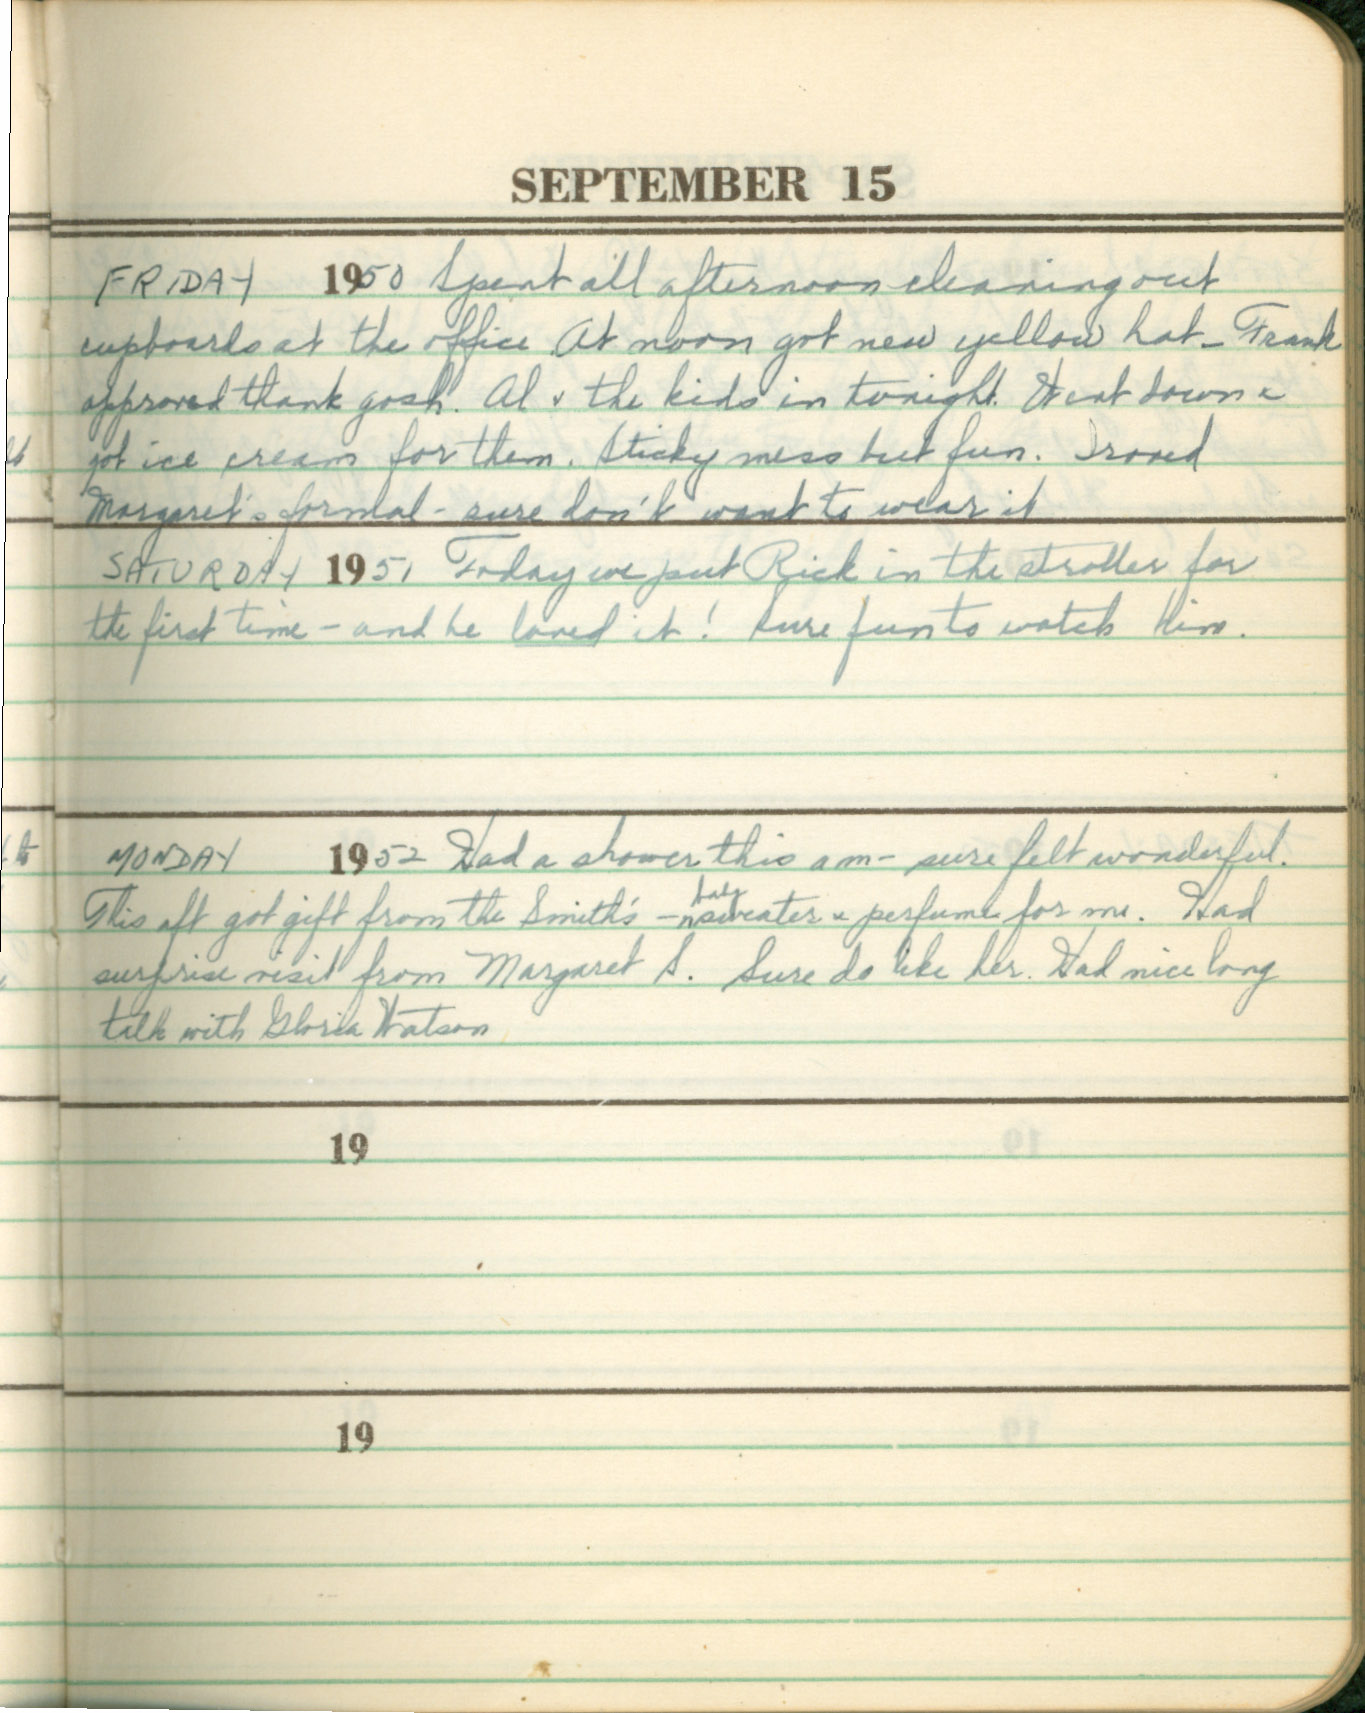 SEPTEMBER 15
FRIDAY 1950 Spent all afternoon cleaning out
cupboards at the office At noon got new yellow hat - Frank
approved thank gosh. Al & the kids in tonight. Went down &
got ice cream for them. Sticky mess but fun. Ironed
Margaret's formal - sure don't want to wear it
SATURDAY 1951 Today we put Rick in the stroller for
the first time - and he loved it! Sure fun to watch him.
MONDAY 1952 Had a shower this am - sure felt wonderful.
baby
This aft got gift from the Smith's - sweater & perfume for me. Had
surprise visit from Margaret S. Sure do like her. Had nice long
talk with Gloria Watson
19
19